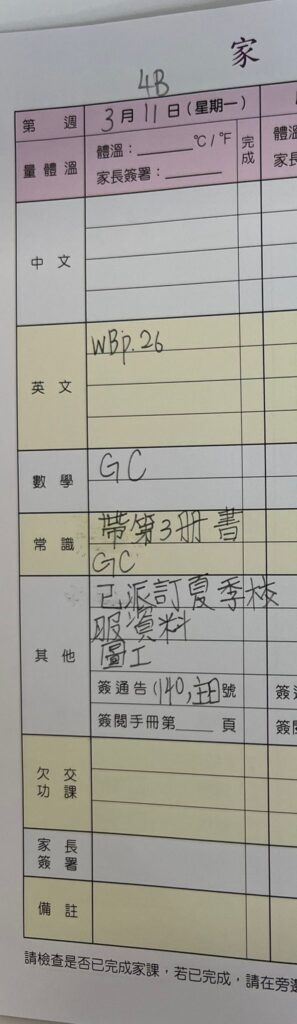 家
4B
第 週 3月11日(星期一)
量體溫 體溫：______℃/℉ 完成
家長簽署：______
中文
英文 WBp.26
數學 GC
常識 帶第3冊書
GC
其他 已派訂夏季校
服資料
圖工
簽通告(140,主日號
簽閱手冊第____頁
欠交功課
家長簽署
備註
請檢查是否已完成家課，若已完成，請在旁邊